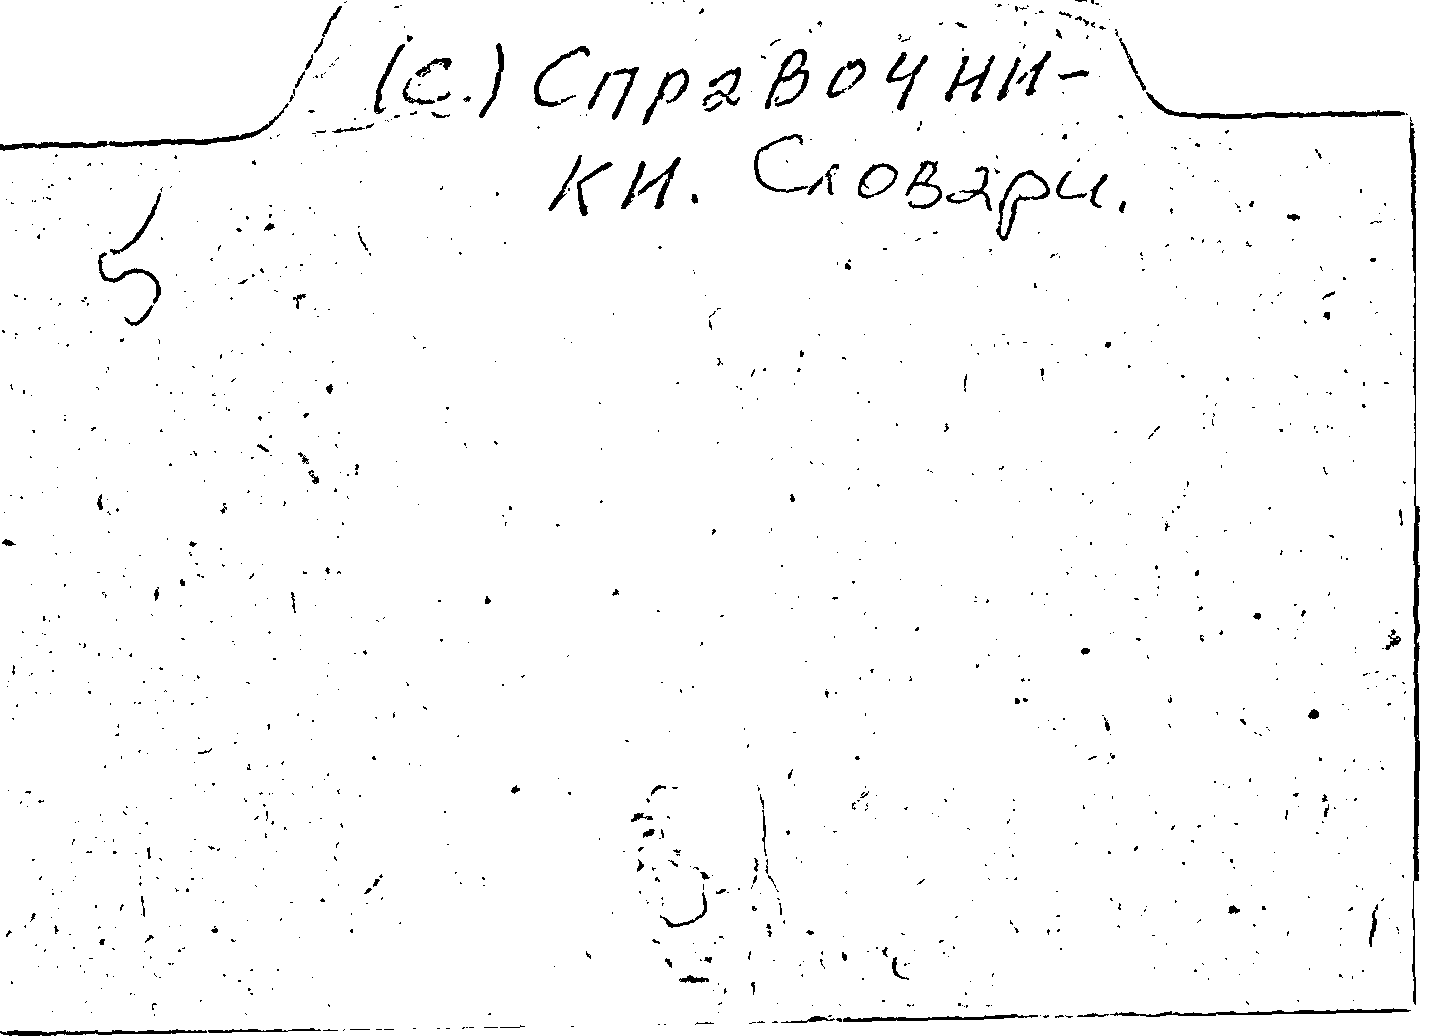 (С.) Справочни-
ки. Словари.
5